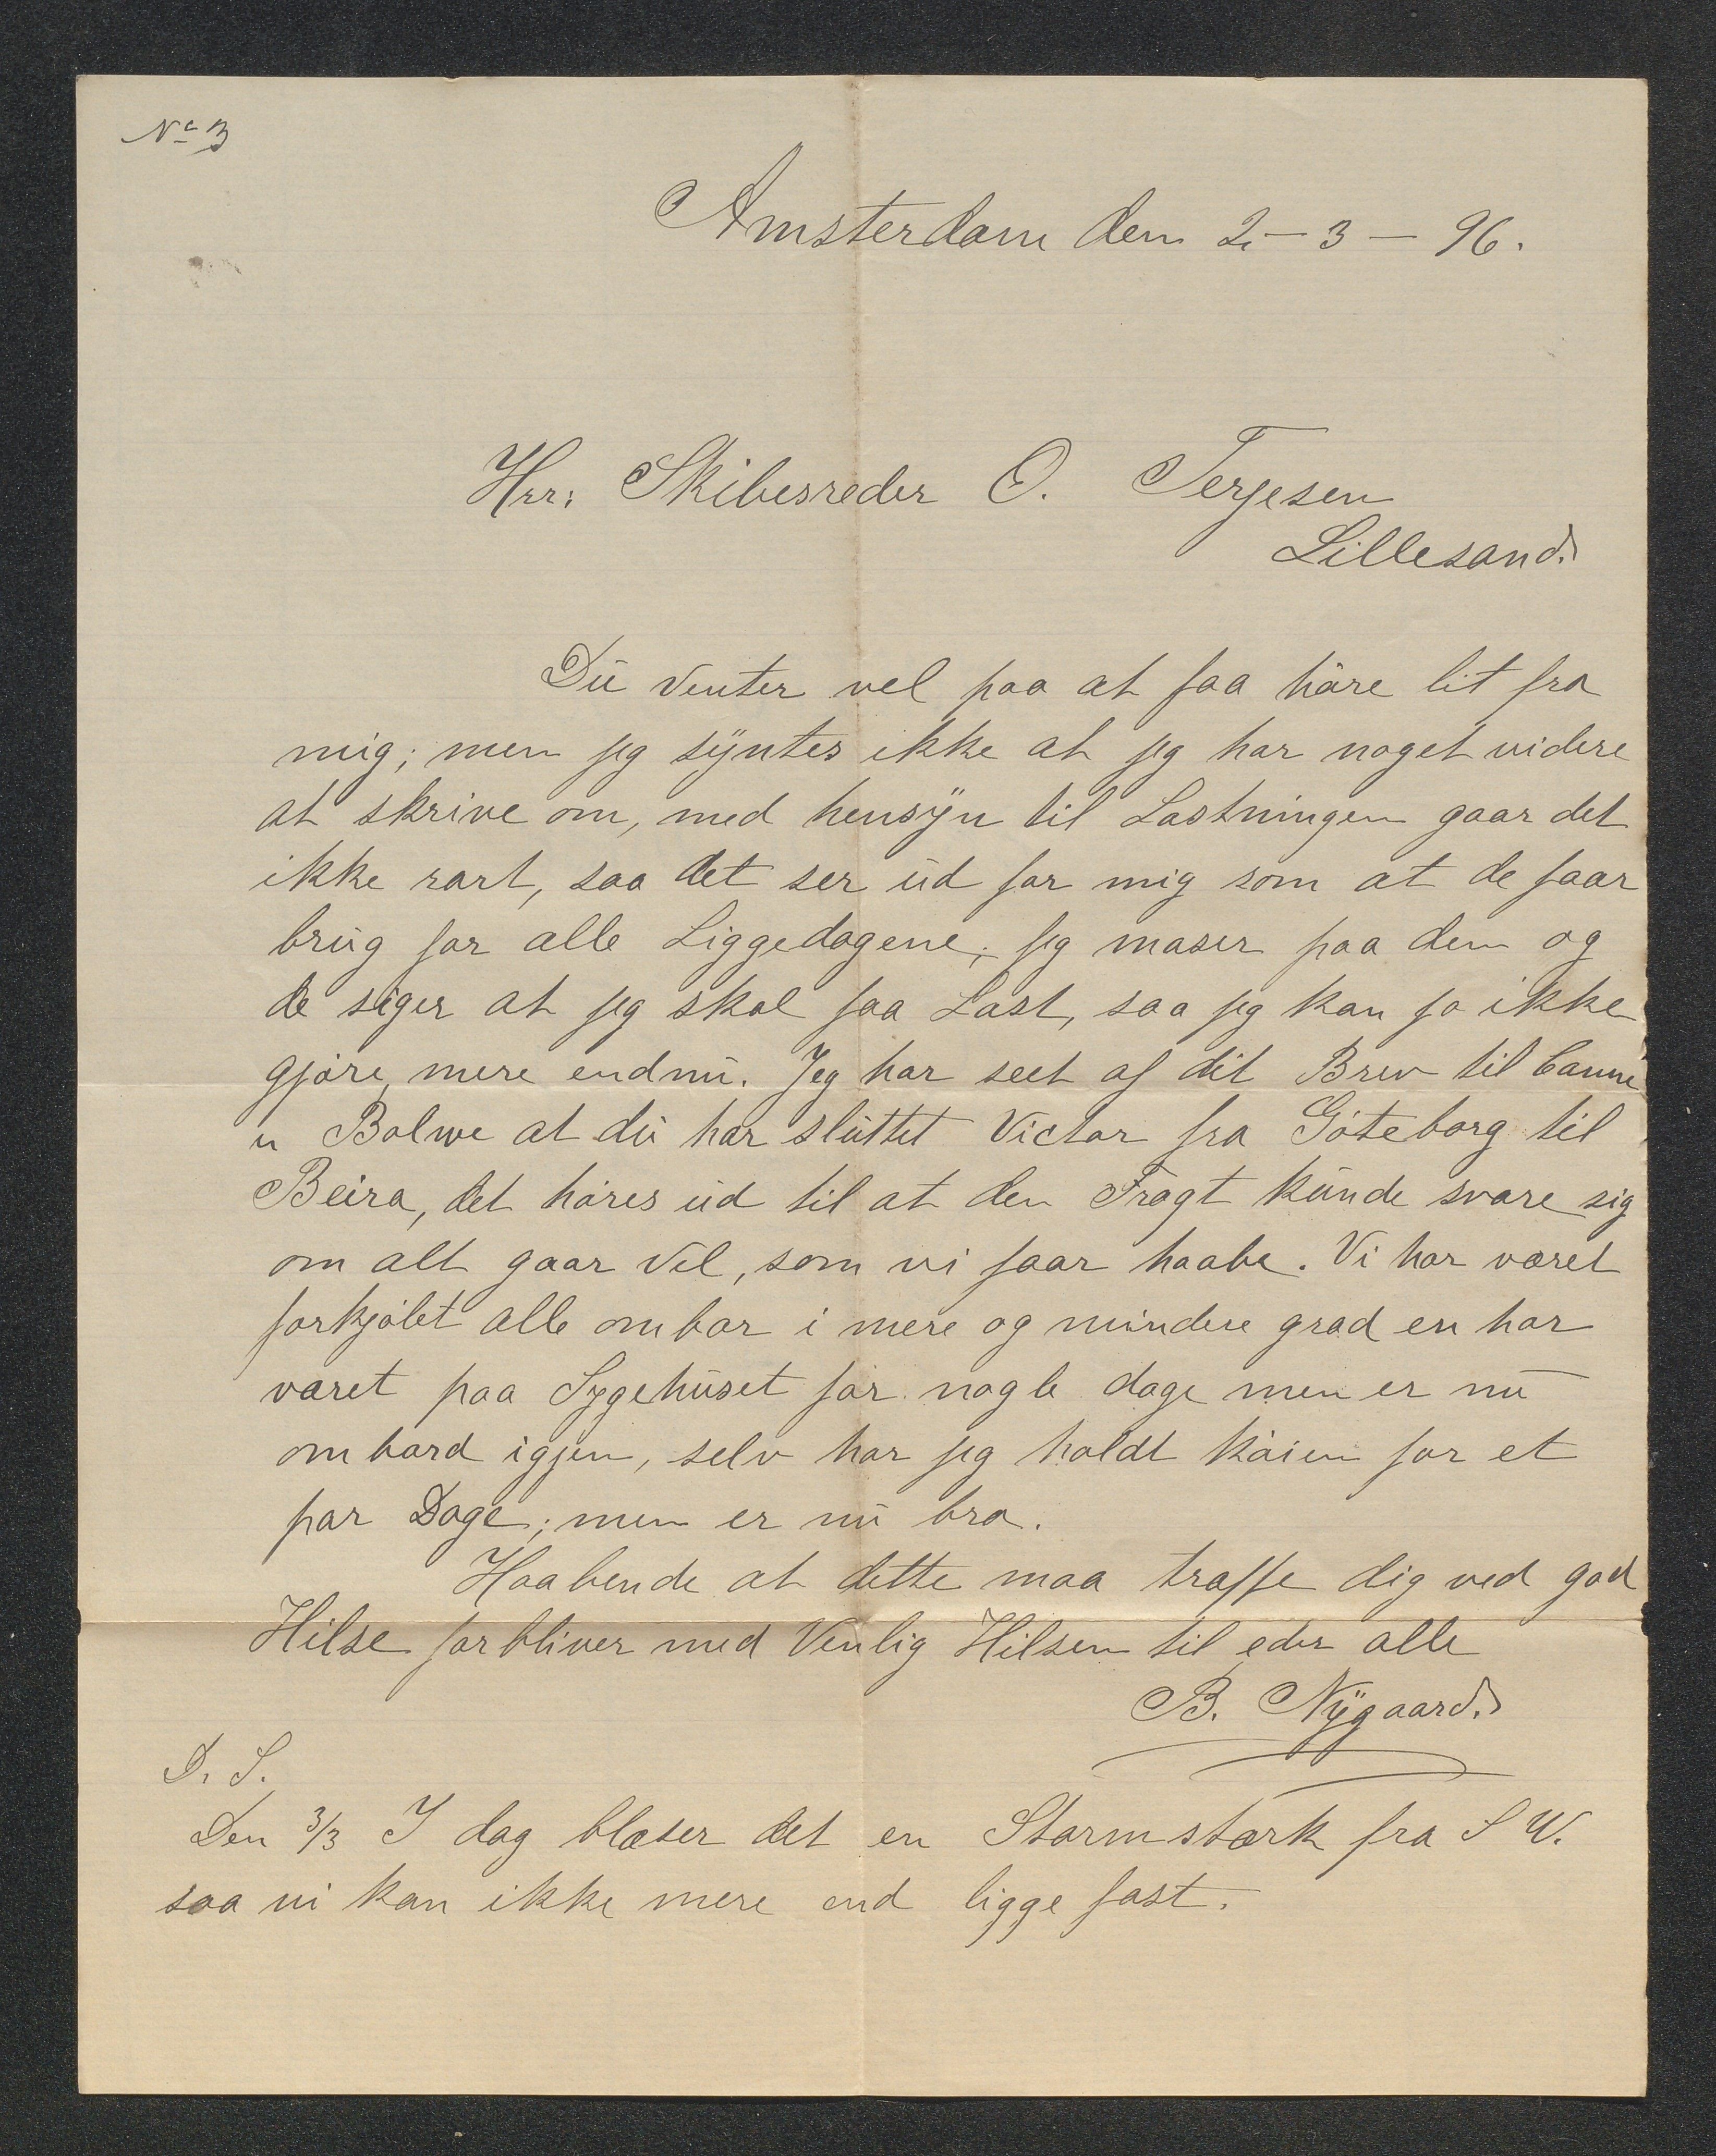 No 3
Amsterdam den 2-3-96.
Hrr. Skibesreder O. Terjesen
Lillesand.
Du venter vel paa at faa høre lit fra
mig; men jeg syntes ikke at jeg har noget videre
at skrive om, med hensyn til Lastningen gaar det
ikke rart, saa det ser ud for mig som at de faar
brug for alle Liggedagene; jeg maser paa dem og
de siger at jeg skal faa Last, saa jeg kan jo ikke
gjøre mere endnu. Jeg har seet af dit Brev til
at du har sluttet Victor fra Göteborg til
Beira, det høres ud til at den Fragt kunde svare sig
om alt gaar vel, som vi faar haabe. Vi har været
forkjølet alle ombor i mere og mindere grad en har
været paa Sygehuset før nogle dage men er nu
ombord igjen, selv har jeg holdt køien for et
par Dage; men er nu bra.
Haabende at dette maa træffe dig ved god
Hilse forbliver med Venlig Hilsen til eder alle
B. Nygaard.
D. S.
Den 3/3 I dag blæser det en Storm stærk fra S W.
saa vi kan ikke mere end ligge fast.